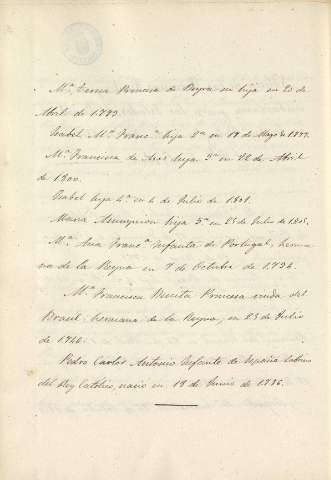 Mª Teresa Princesa de Beyra su hija en 29 de
Abril de 1793.
Isabel Mª Francª hija 2ª en 19 de Mayo de 1797.
Mª Francisca de Asis hija 3ª en 22 de Abril
de 1800.
Isabel hija 4ª en 4 de Julio de 1801.
Maria Asumpcion hija 5ª en 25 de Julio de 1805.
Mª Ana Francª Infanta de Portugal, herma-
na de la Reyna en 7 de Octubre de 1736.
Mª Francisca Benita Princesa viuda del
Brasil hermana de la Reyna, en 25 de Julio
de 1746.
Pedro Carlos Antonio Infante de España sobrino
del Rey Catolico, nació en 18 de Junio de 1786.